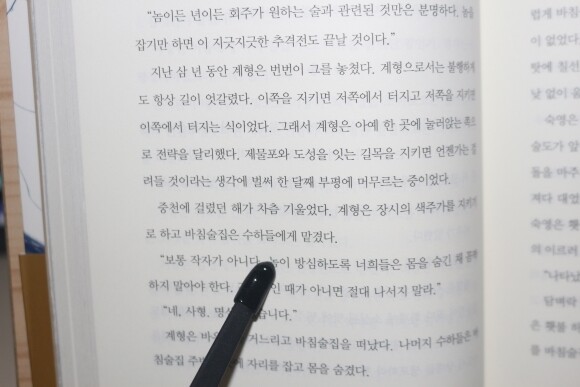 “놈이든 년이든 회주가 원하는 술과 관련된 것만은 분명하다. 놈을
잡기만 하면 이 지긋지긋한 추격전도 끝날 것이다.”
지난 삼 년 동안 계형은 번번이 그를 놓쳤다. 계형으로서는 불행하게
도 항상 길이 엇갈렸다. 이쪽을 지키면 저쪽에서 터지고 저쪽을 지키면
이쪽에서 터지는 식이었다. 그래서 계형은 아예 한 곳에 눌러앉는 쪽으
로 전략을 달리했다. 제물포와 도성을 잇는 길목을 지키면 언젠가는 걸
려들 것이라는 생각에 벌써 한 달째 부평에 머무르는 중이었다.
중천에 걸렸던 해가 차츰 기울었다. 계형은 장시의 색주가를 지키기
로 하고 바침술집은 수하들에게 맡겼다.
“보통 작자가 아니다. 놈이 방심하도록 너희들은 몸을 숨긴 채
하지 말아야 한다. 때가 아니면 절대 나서지 말라.”
“네, 사형.
계형은 거느리고 바침술집을 떠났다. 나머지 수하들은
침술집 자리를 잡고 몸을 숨겼다.
럽게 바침
이 없었다
낮 없이
숙영은
술도가
돌을 마주
져다 대었
숙영은
의 이르러
“나타났
담벼락
은 횃불
를 바침술